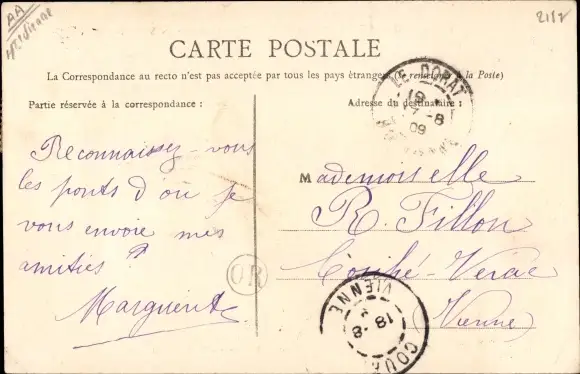 AA
Hte Vienne
2157
CARTE POSTALE
La Correspondance au recto n'est pas acceptée par tous les pays étrangers (Se renseigner à la Poste)
Partie réservée à la correspondance :
Adresse du destinataire :
Reconnaissez-vous
les ponts d'où je
vous envoie mes
amitiés ?
Marguerite
Mademoiselle
R. Fillon
Couhé-Verac
(Vienne)
LE DORAT
18
-8
09
OR
VIENNE
18-8
COUHÉ